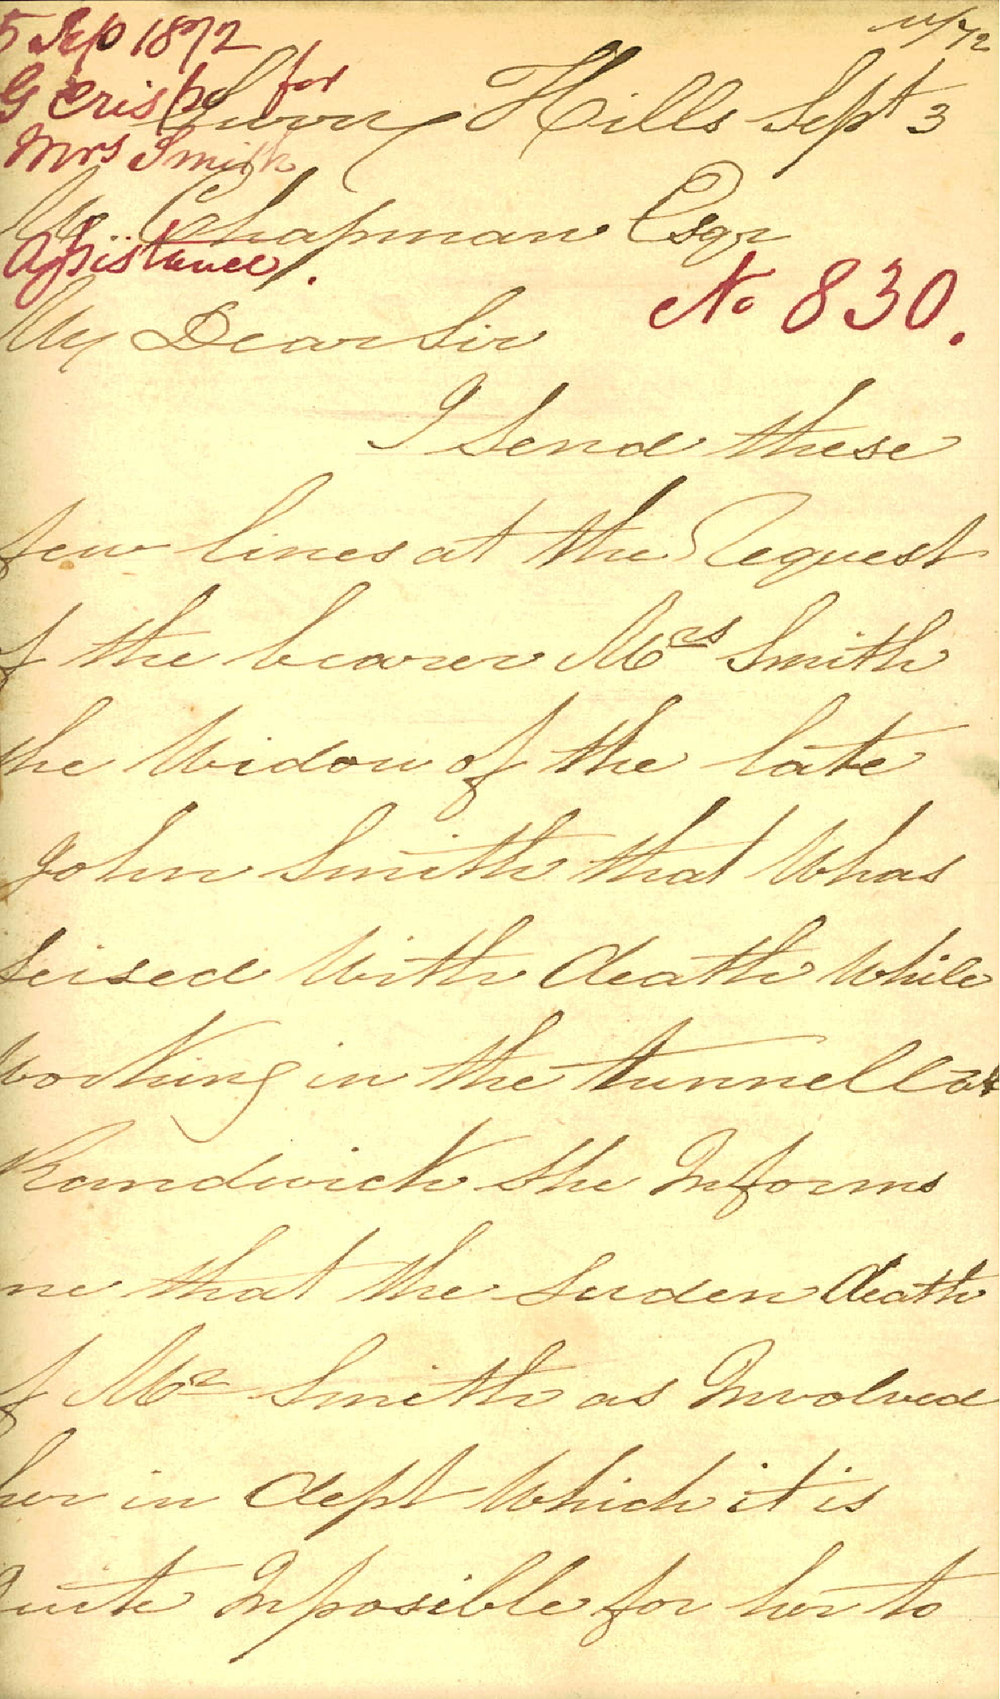 5 Sep 1872
G Crisp for
Mrs Smith
Assistance.
11/72
Surry Hills Sept 3
Mr. Chapman Esqr
No 830.
My Dear Sir
I Send these
few lines at the Request
of the bearer Mrs Smith
the Widow of the late
John Smith that Whas
Seised With death While
Working in the tunnell at
Randwick She Informs
me that the Suden death
of Mr Smith as Involved
her in dept Which it is
Quite Inposible for her to